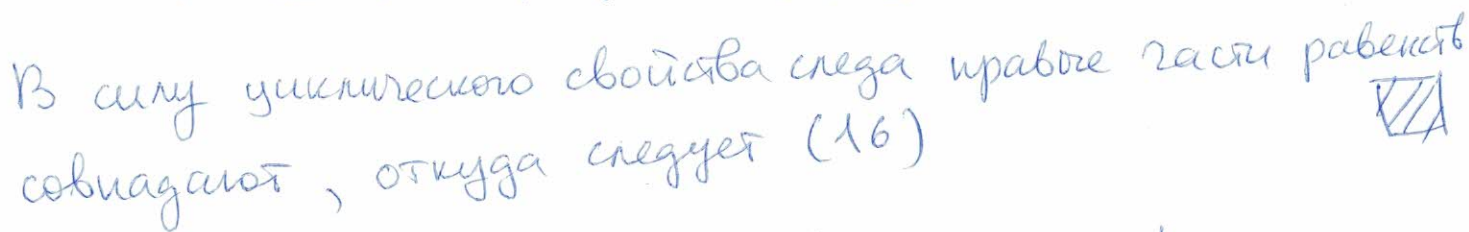 В силу циклического свойства следа правые части равенств
совпадают, откуда следует (16)